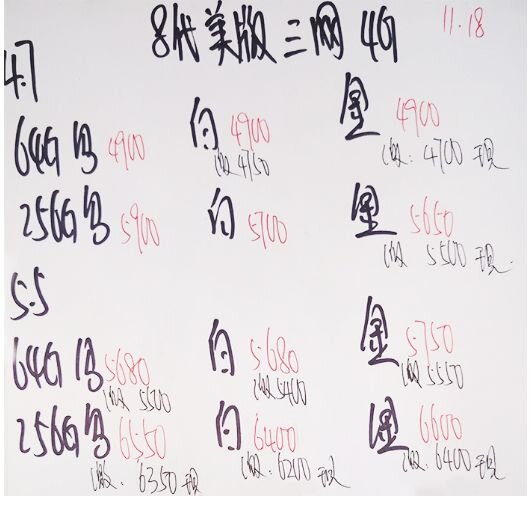 8代美版三网4G 11.18
4.7
64G 黑 4900 白 4900 金 4900
激4750 激:4700 现
256G 黑 5900 白 5700 金 5650
激 5500 现
5.5
64G 黑 5680 白 5680 金 5750
激 5500 激5400 激5550
256G 黑 6550 白 6400 金 6600
激:6350现 激:6200现 激:6400现